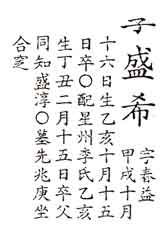 子盛希
字春益
甲戌十月
十六日生乙亥十月十五
日卒〇配星州李氏乙亥
生丁丑二月十五日卒父
同知盛淳〇墓先兆庚坐
合窆